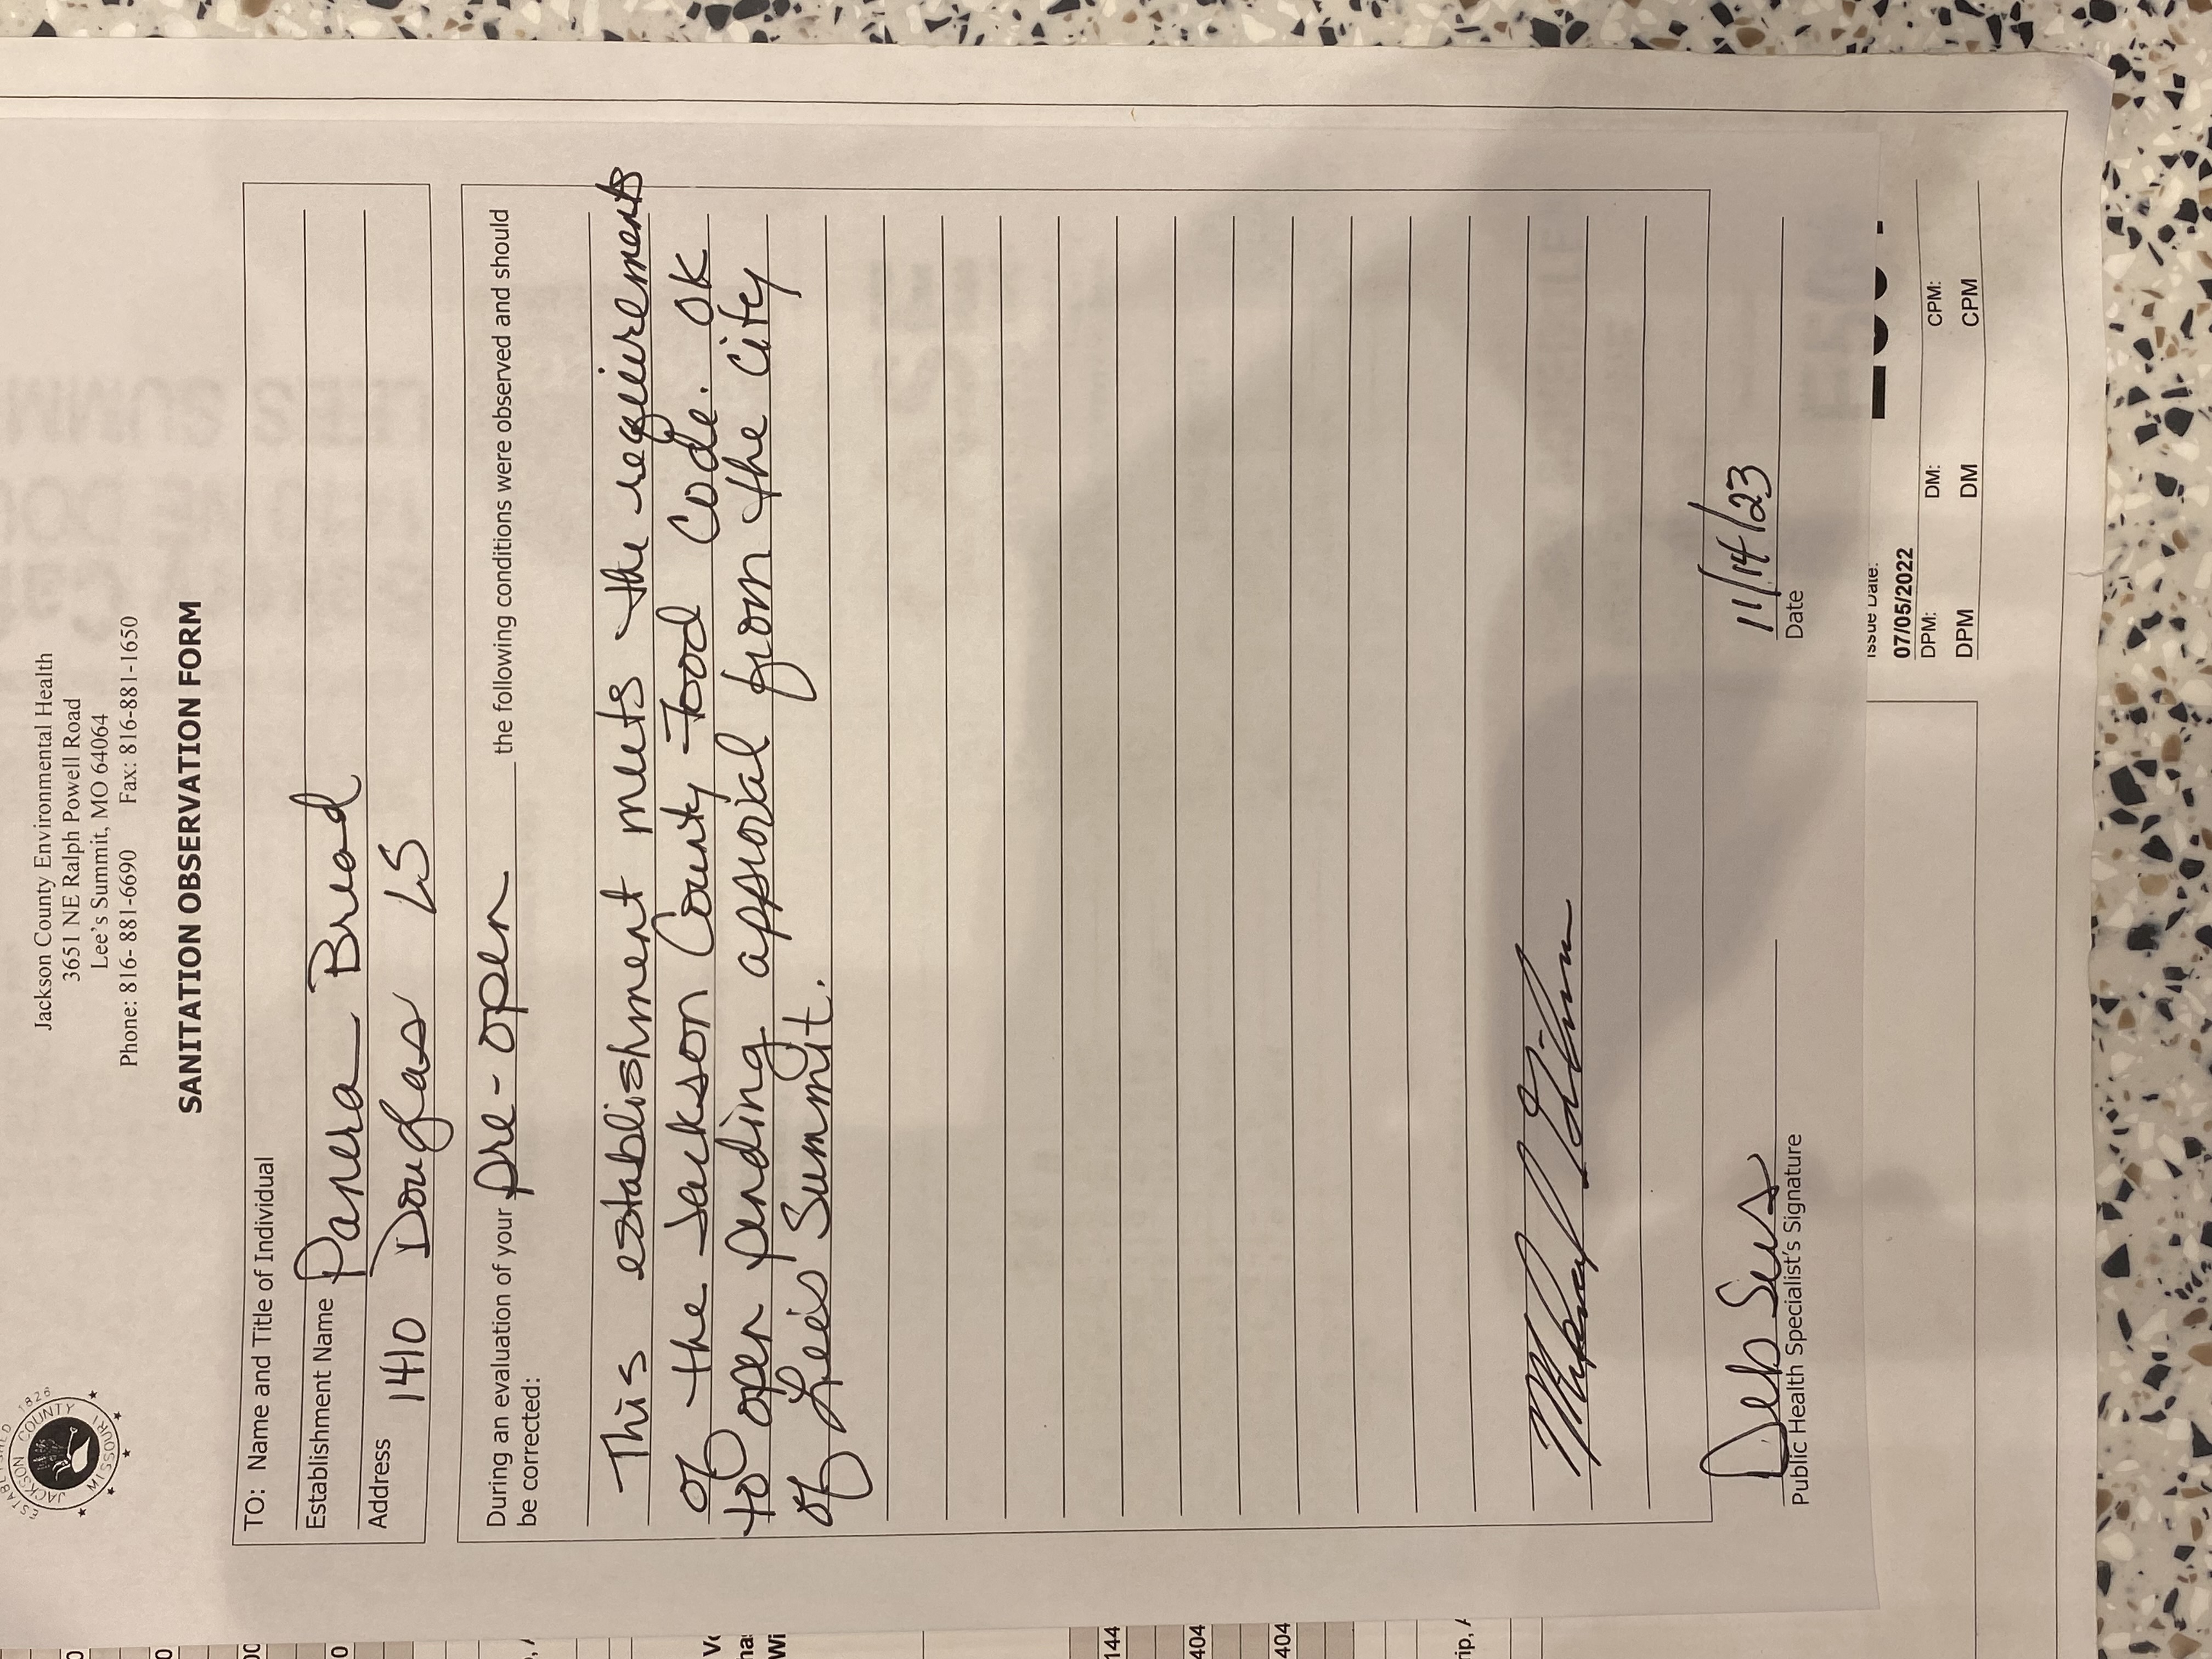 ESTABLISHED 1826
JACKSON COUNTY
MISSOURI
Jackson County Environmental Health
3651 NE Ralph Powell Road
Lee's Summit, MO 64064
Phone: 816- 881-6690 Fax: 816-881-1650
SANITATION OBSERVATION FORM
TO: Name and Title of Individual
Establishment Name Panera Bread
Address 1410 Douglas LS
During an evaluation of your pre-open the following conditions were observed and should
be corrected:
This establishment meets the requirements
of the Jackson County Food Code. OK
to open pending approval from the city
of Lee's Summit.
Deb Sees
Public Health Specialist's Signature
11/14/23
Date
Issue Date:
07/05/2022
DPM: DM: CPM:
DPM DM CPM
144
404
404